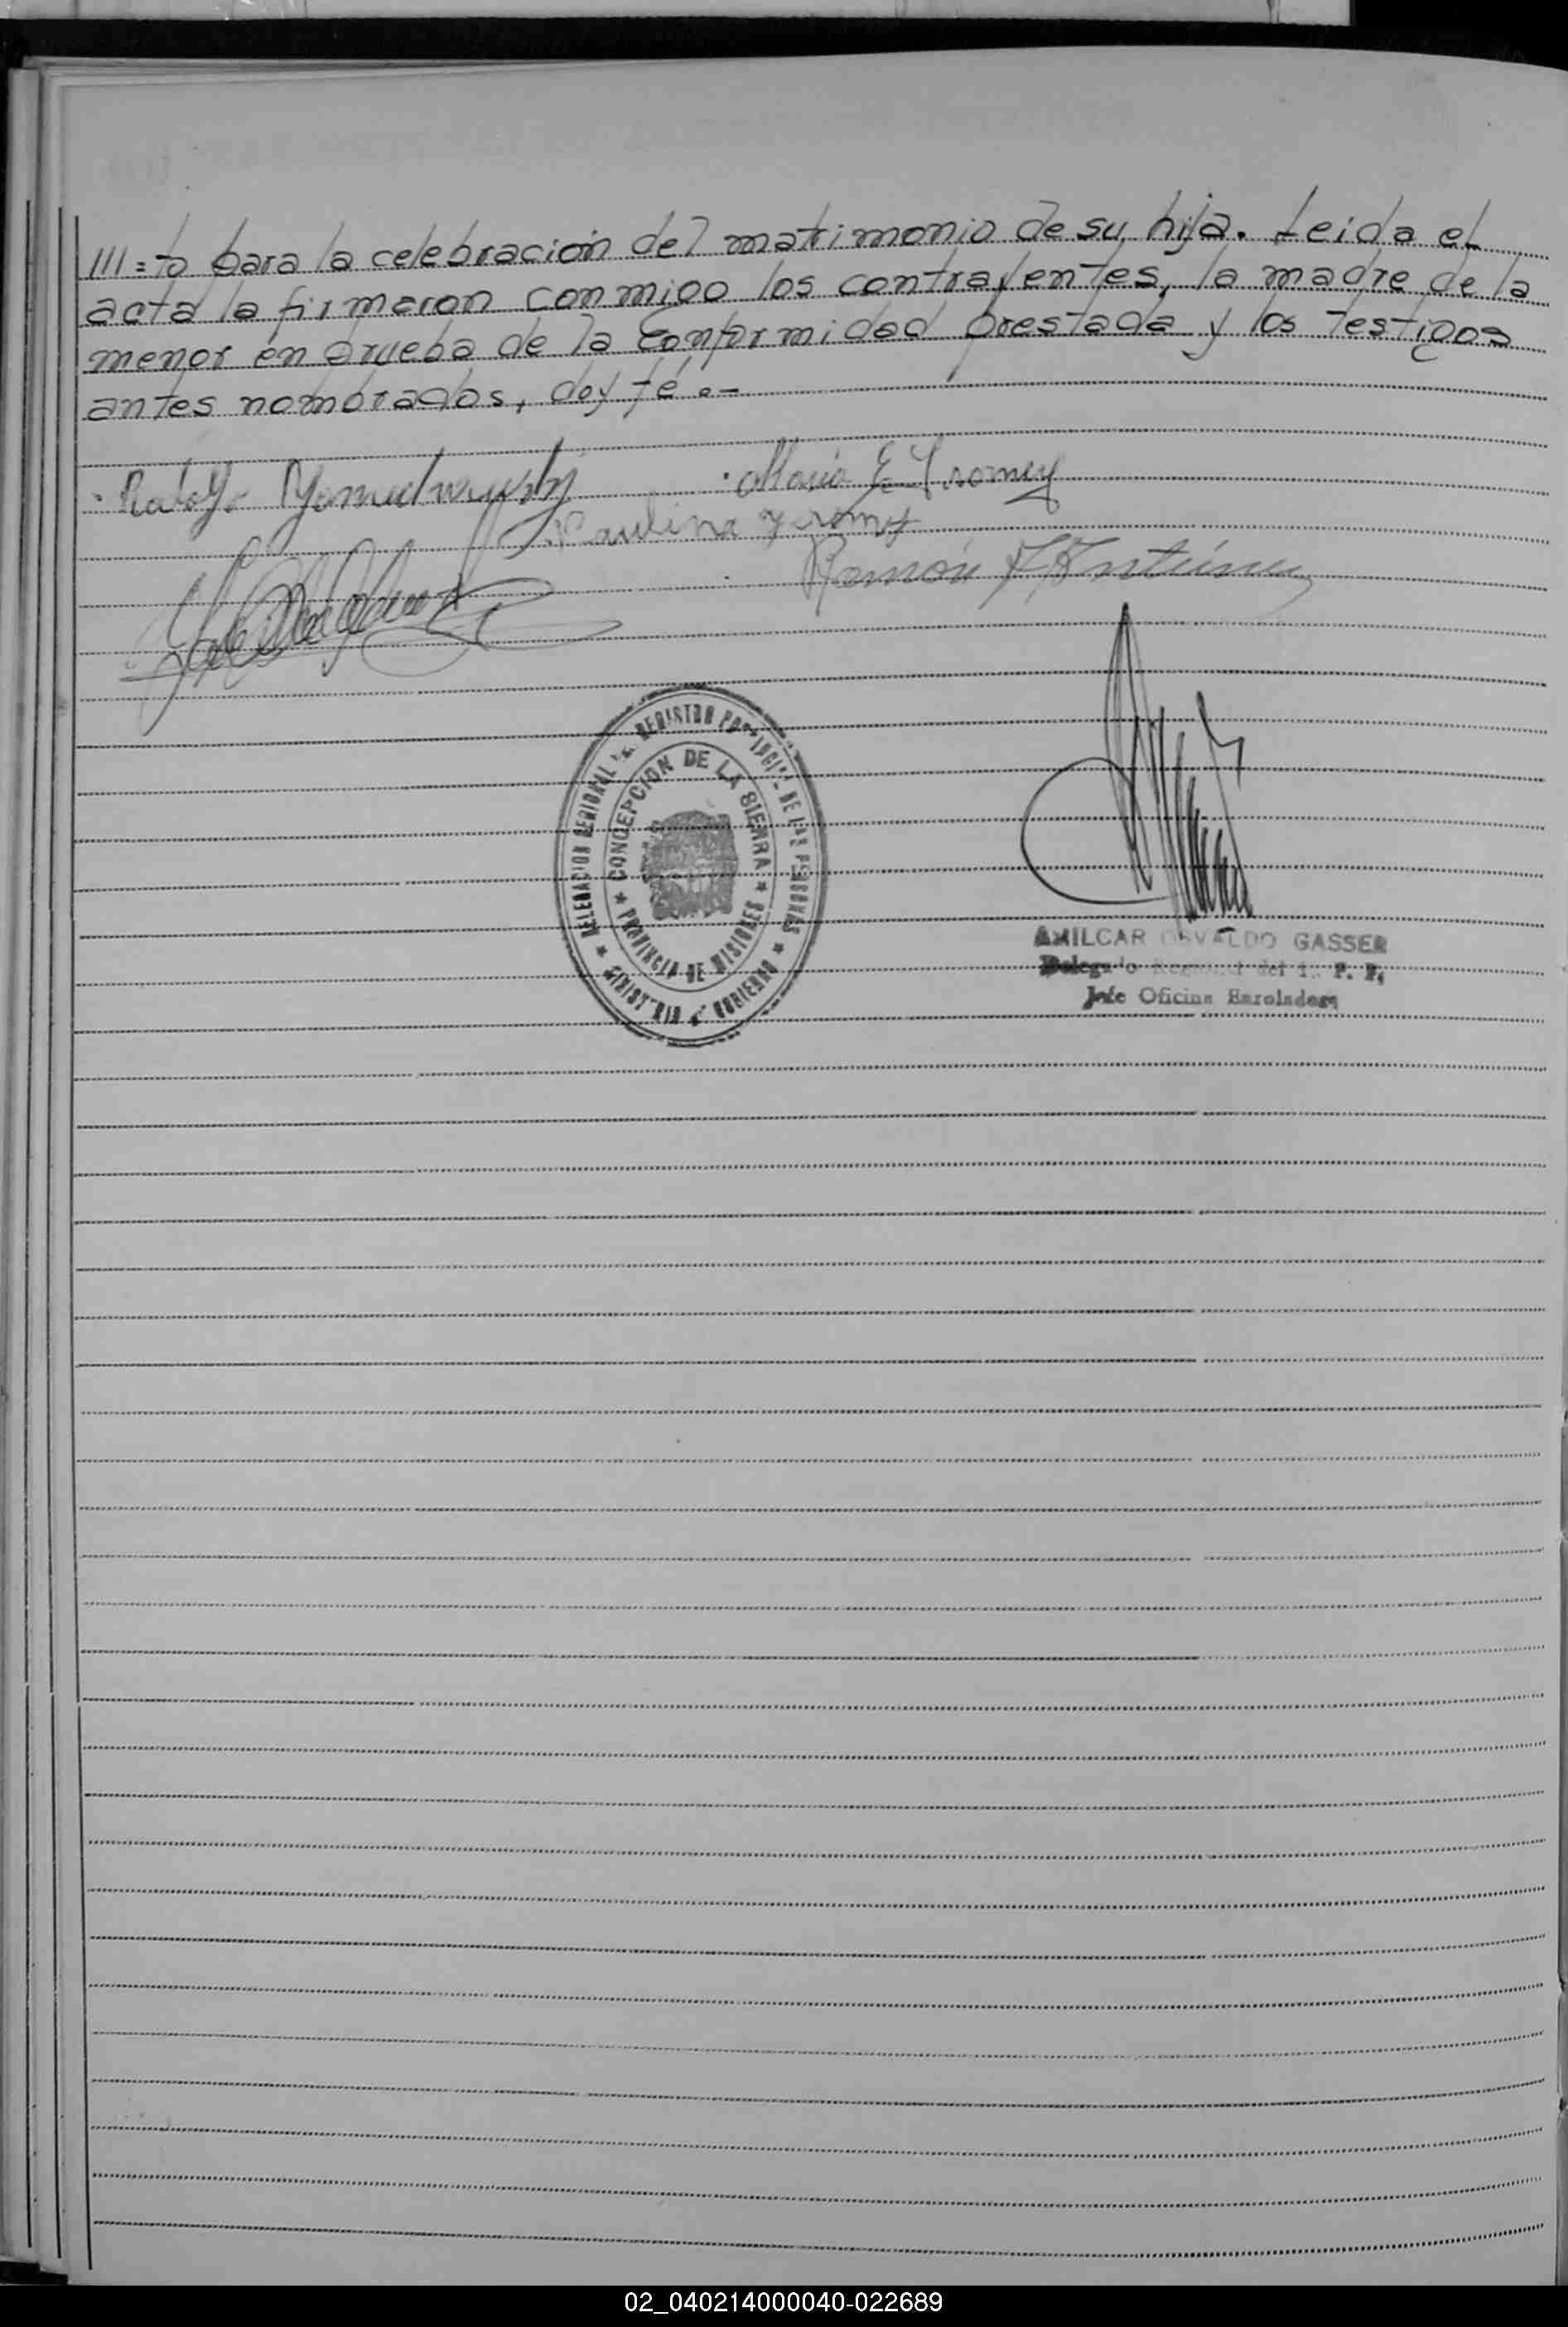 ///=to para la celebración del matrimonio de su hija. Leida el
acta la firmaron conmigo los contrayentes, la madre de la
menor en prueba de la conformidad prestada y los testigos
antes nombrados, doy fé.-
Rodolfo
María E.
Paulina
Ramón Antúnez
DELEGACION REGIONAL REGISTRO DE LAS PERSONAS
CONCEPCION DE LA SIERRA
PROVINCIA DE MISIONES
MINISTERIO GOBIERNO
AMILCAR OSVALDO GASSER
Delegado Regional del R. P. P.
Jefe Oficina Enroladora
02_040214000040-022689